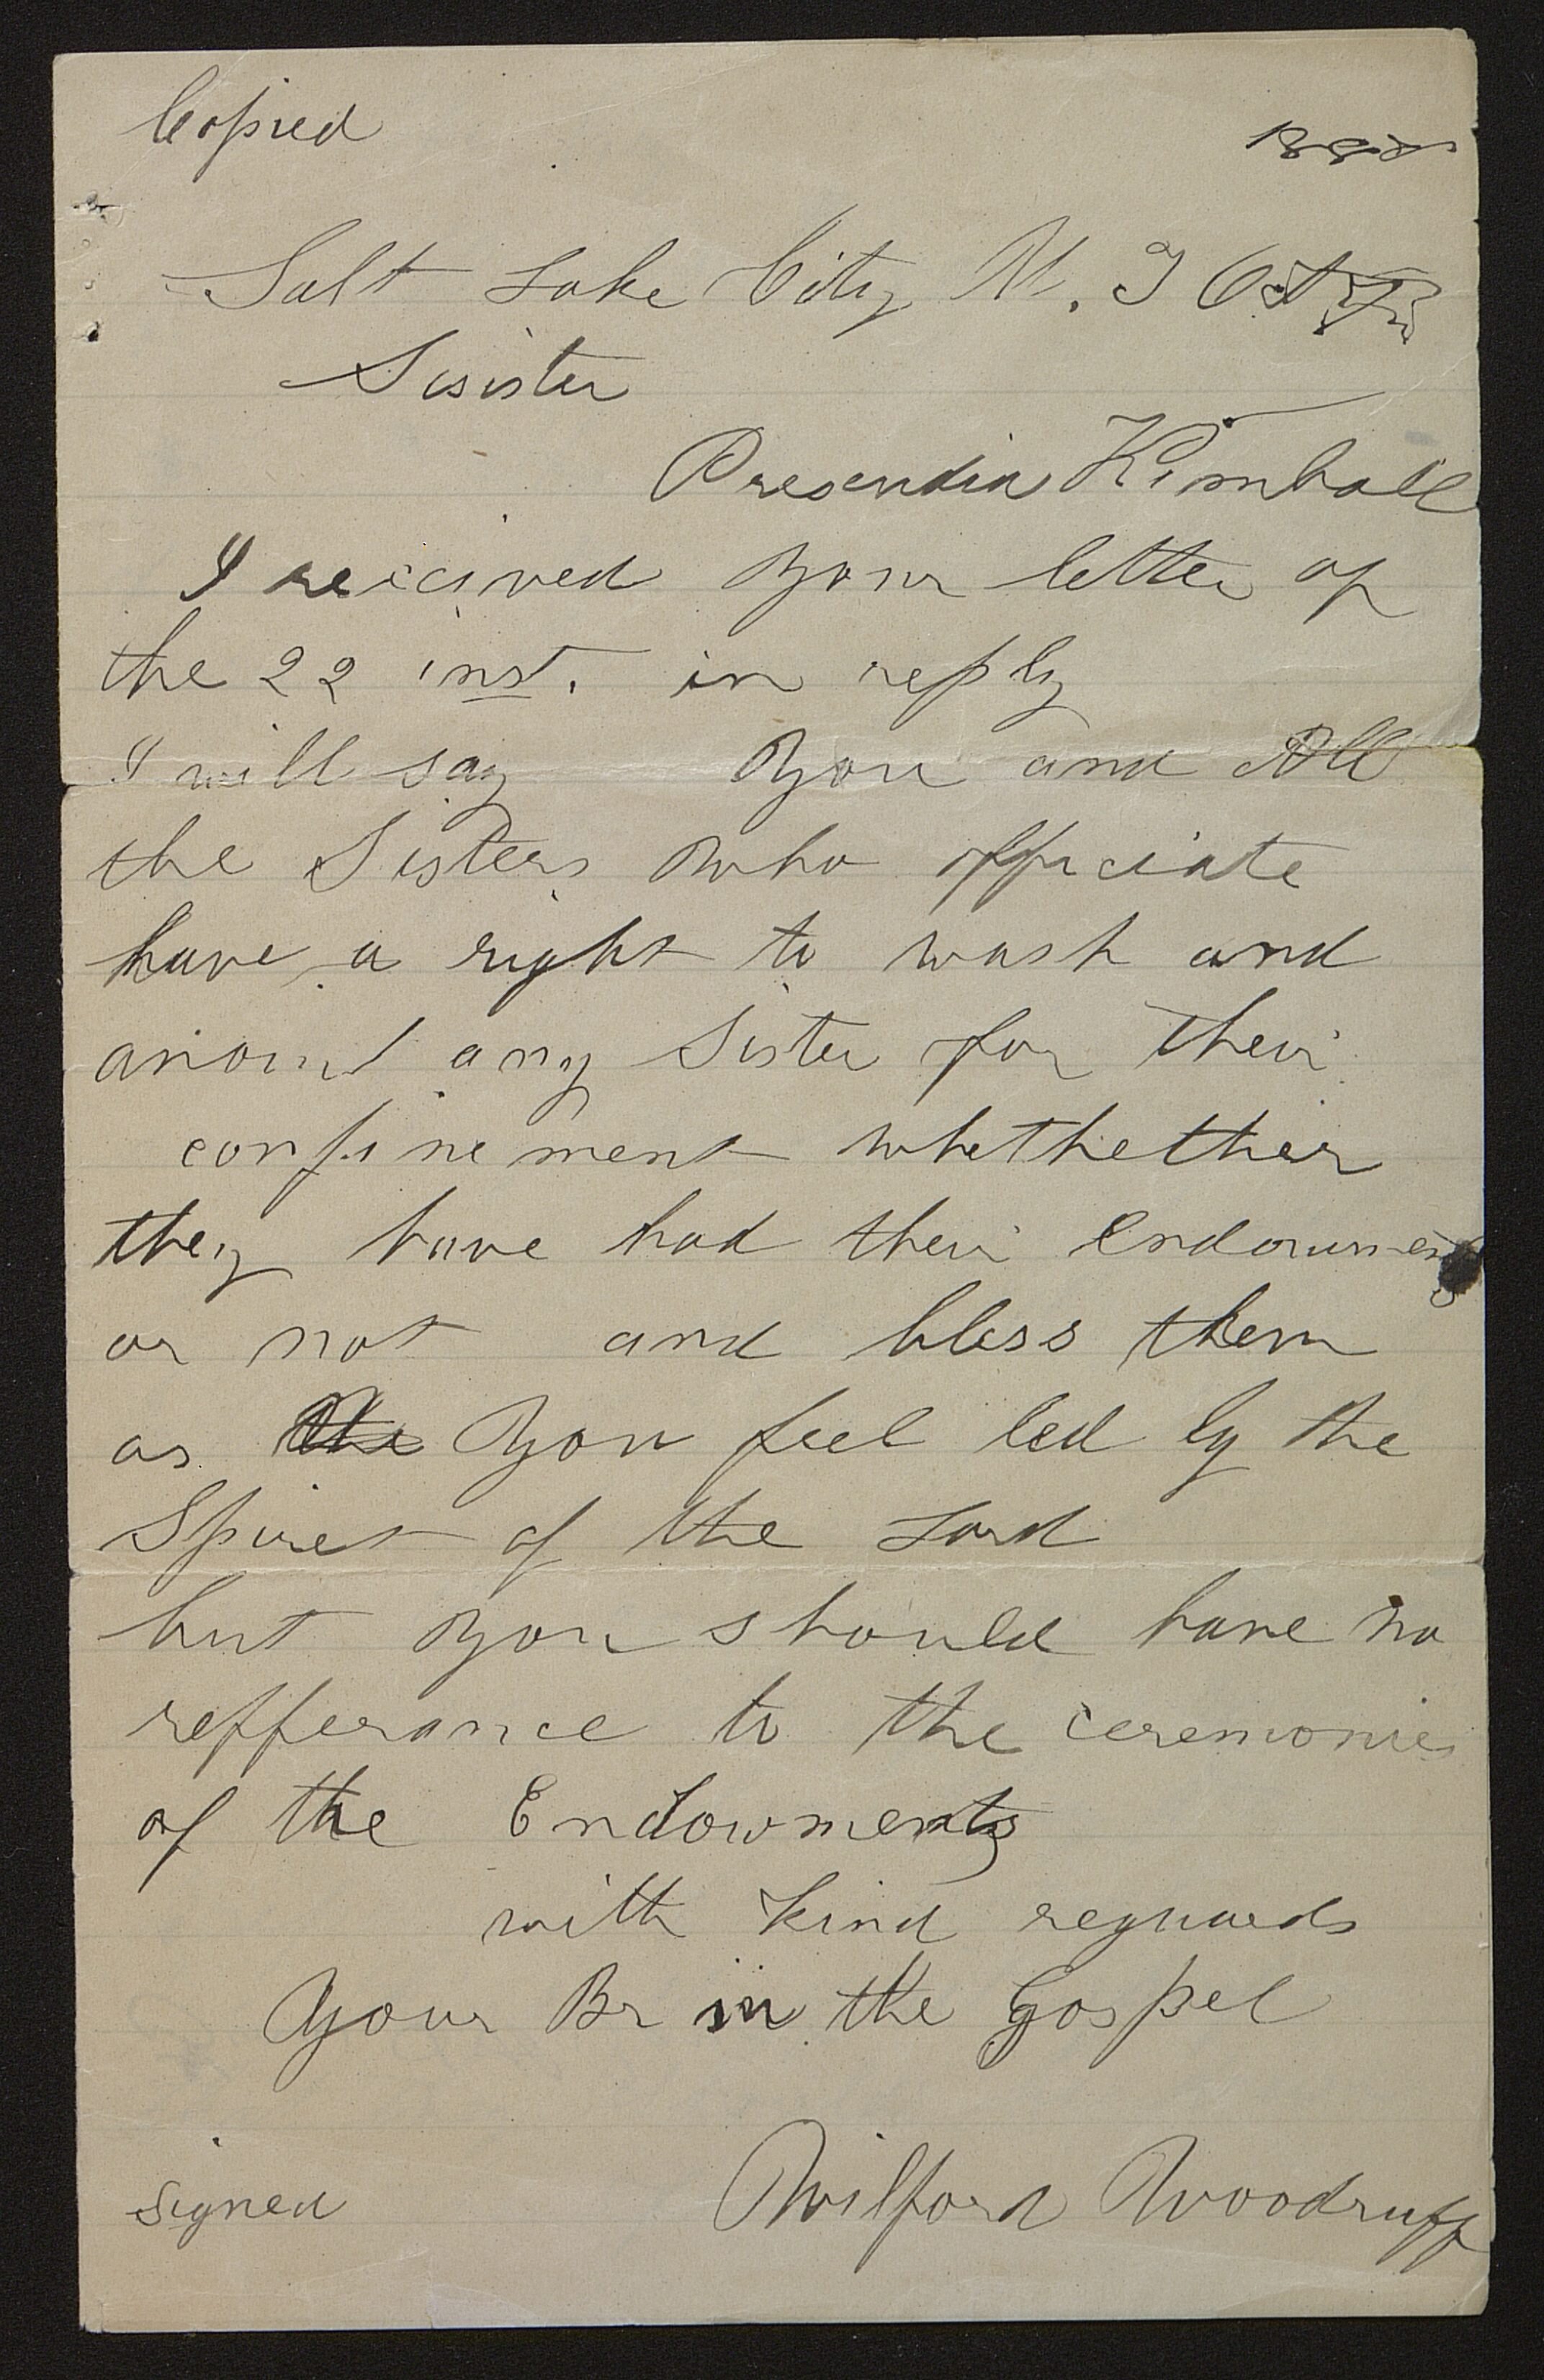 Copied
1888
Salt Lake City U. T Oct
Sisister
Presendia Kimball
I reicived your letter of
the 22 inst. in reply
I will say you and All
the Sisters who officiate
have a right to wash and
anoint any Sister for their
confinement whethether
they have had their endowment
or not and bless them
as the you feel led by the
Spiret of the Lord
but you should have no
refferance to the ceremonies
of the Endowments
with kind reguards
Your Br in the Gospel
signed Wilford Woodruff